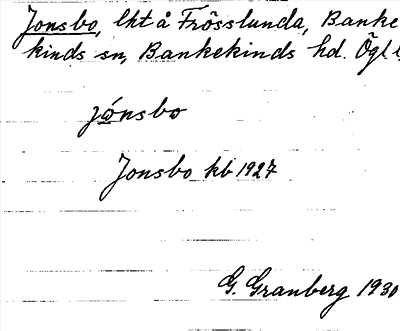 Jonsbo, lht å Frösslunda, Banke
kinds sn, Bankekinds hd. Ögl.
jónsbo
Jonsbo kb 1927
G. Granberg 1930